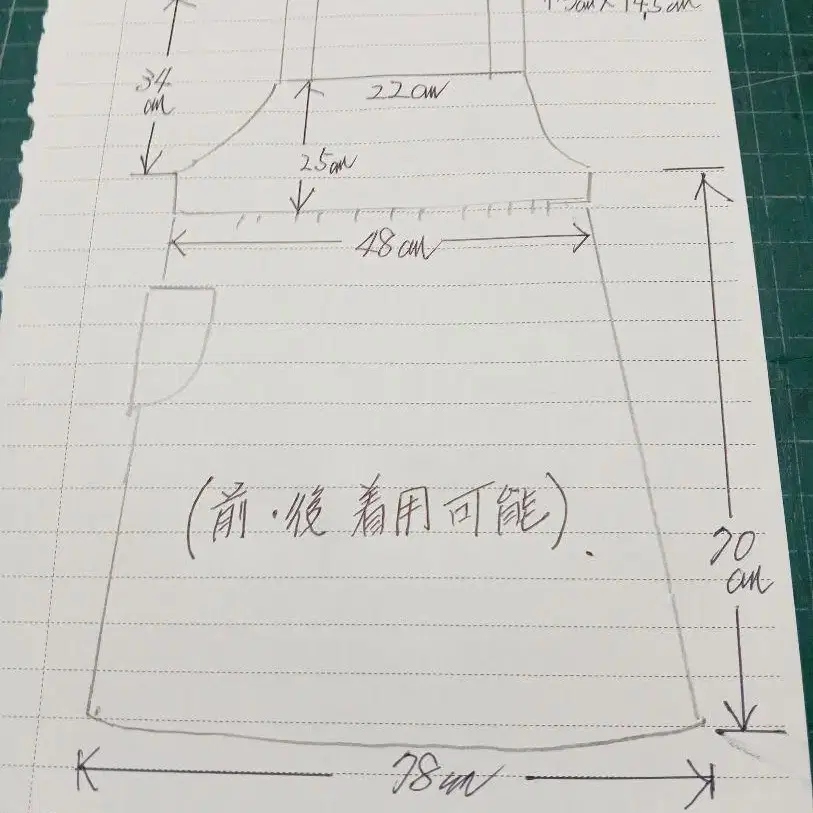 34
cm
22cm
25cm
48cm
(前・後 着用可能).
70
cm
78cm